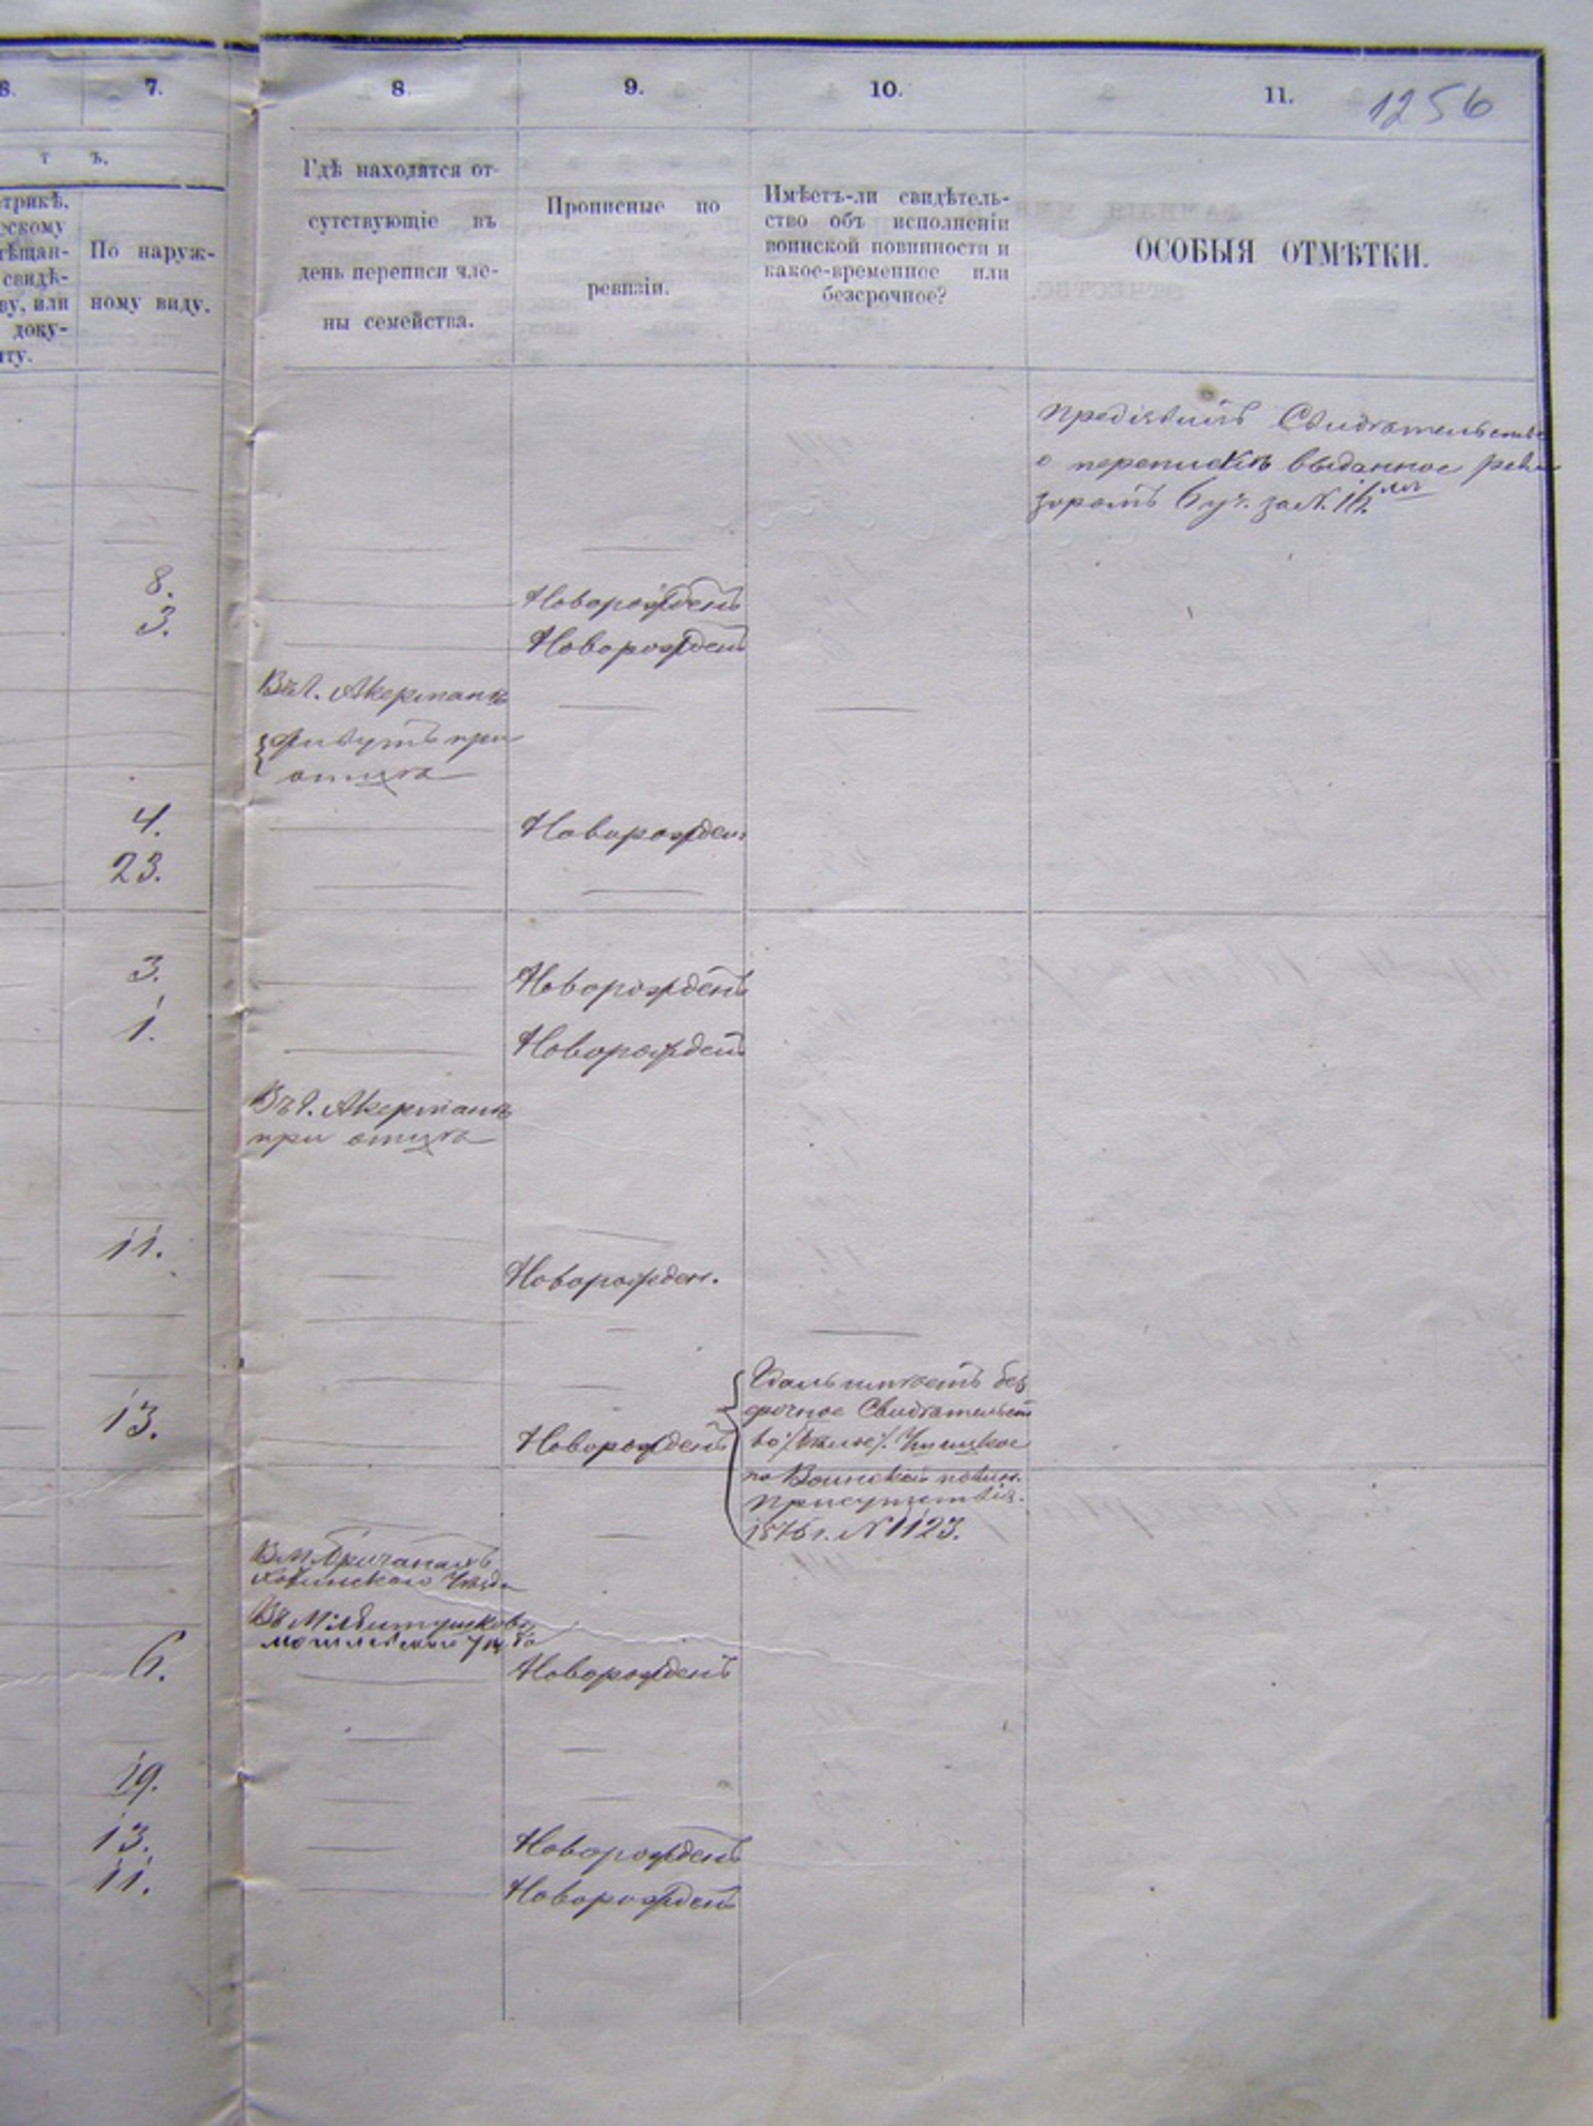 6. 7. 8. 9. 10. 11. 1256
т ъ.
трикѣ,
ескому
мѣщан-
свидѣ-
ву, или
доку-
нту.
По наруж-
ному виду.
Гдѣ находятся от-
сутствующіе въ
день переписи чле-
ны семейства.
Прописные по
ревизіи.
Имѣетъ-ли свидѣтель-
ство объ исполненіи
воинской повинности и
какое-временное или
безсрочное?
ОСОБЫЯ ОТМѢТКИ.
Предъявилъ Свидѣтельство
о перепискѣ выданное реви
зоромъ 6 уч. за N.
8. Новорожденъ
3. Новорожденъ
Въ г. Акерманѣ
живутъ при
отцѣ
4. Новорожден
23.
3. Новорожденъ
1. Новорожденъ
Въ г. Акерманѣ
при отцѣ
11. Новорожден.
имѣетъ без
срочное Свидѣтельст
13. Новорожденъ во
по Воинской повин.
Присутствія.
1876 г. N 1123.
В м. Бричанахъ
Хотинскаго Уѣзда
Въ М.
могилевскаго уѣзда
6. Новорожденъ
19.
13. Новорожденъ
11. Новорожденъ